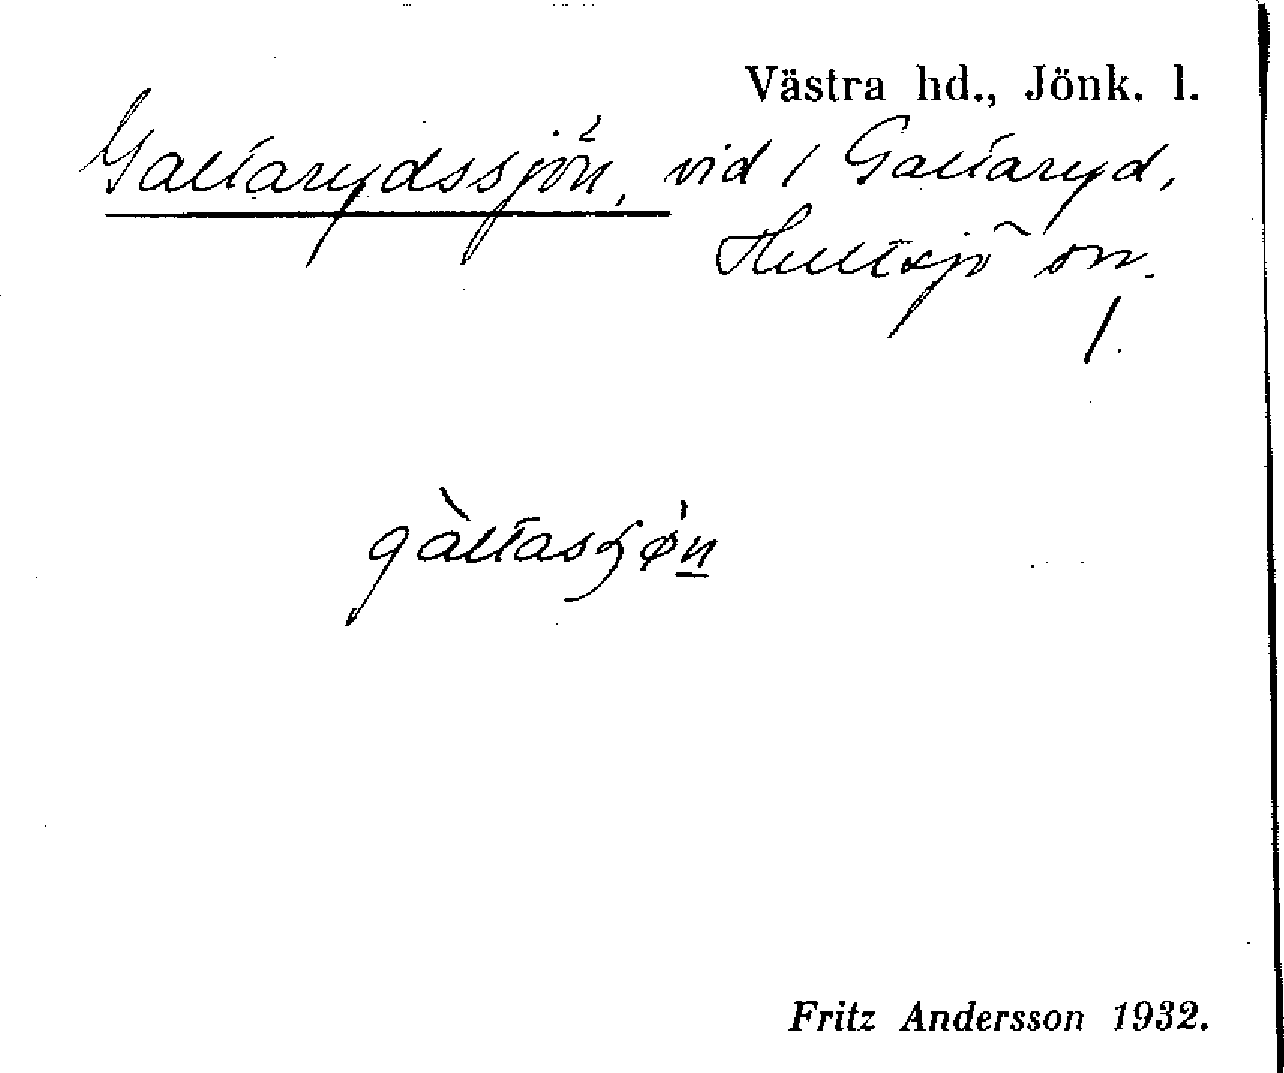 Västra hd., Jönk. l.
Galtarydssjön, vid / Galtaryd,
Hultsjö sn.
/.
gàltasʒø̀n
Fritz Andersson 1932.